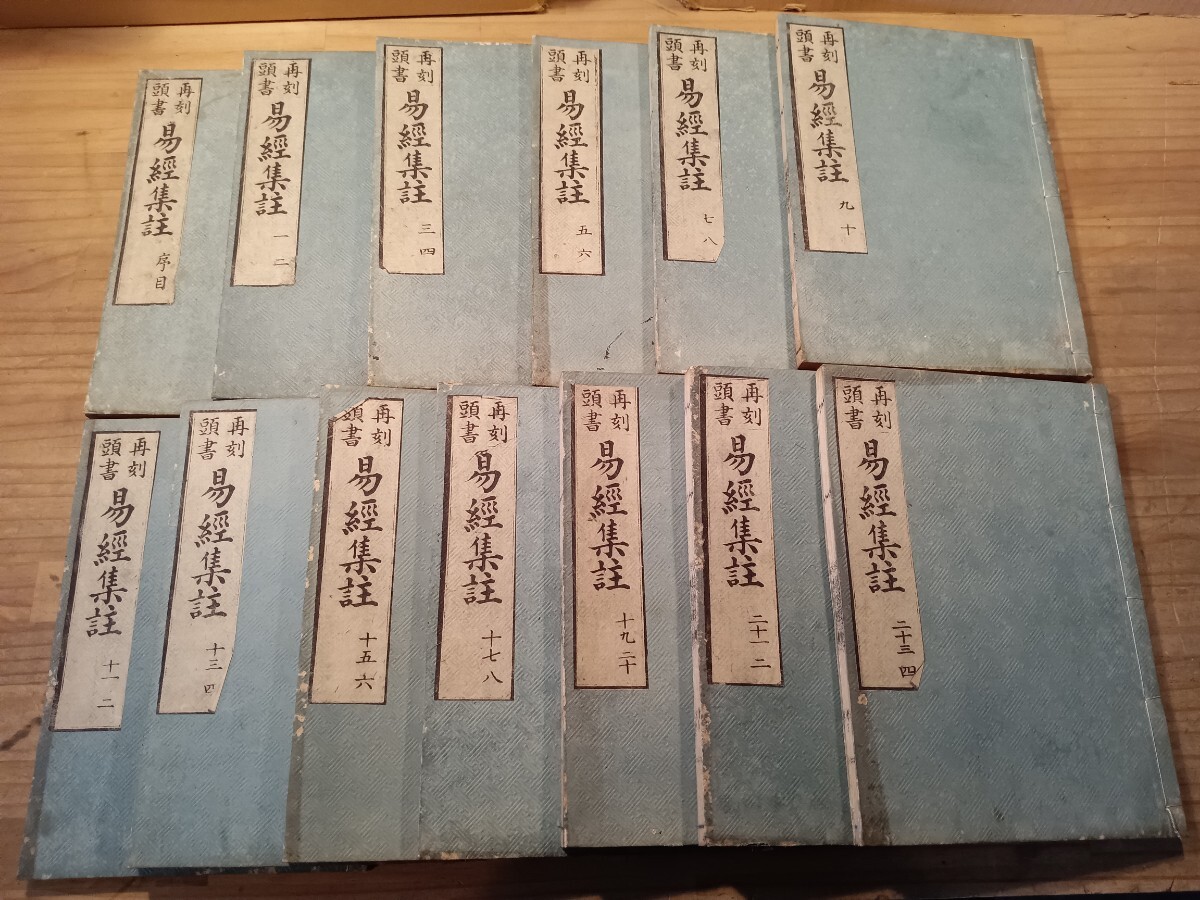 再刻
頭書
易經集註
序目
再刻
頭書
易經集註
一二
再刻
頭書
易經集註
三四
再刻
頭書
易經集註
五六
再刻
頭書
易經集註
七八
再刻
頭書
易經集註
九十
再刻
頭書
易經集註
十一二
再刻
頭書
易經集註
十三四
再刻
頭書
易經集註
十五六
再刻
頭書
易經集註
十七八
再刻
頭書
易經集註
十九二十
再刻
頭書
易經集註
二十一二
再刻
頭書
易經集註
二十三四